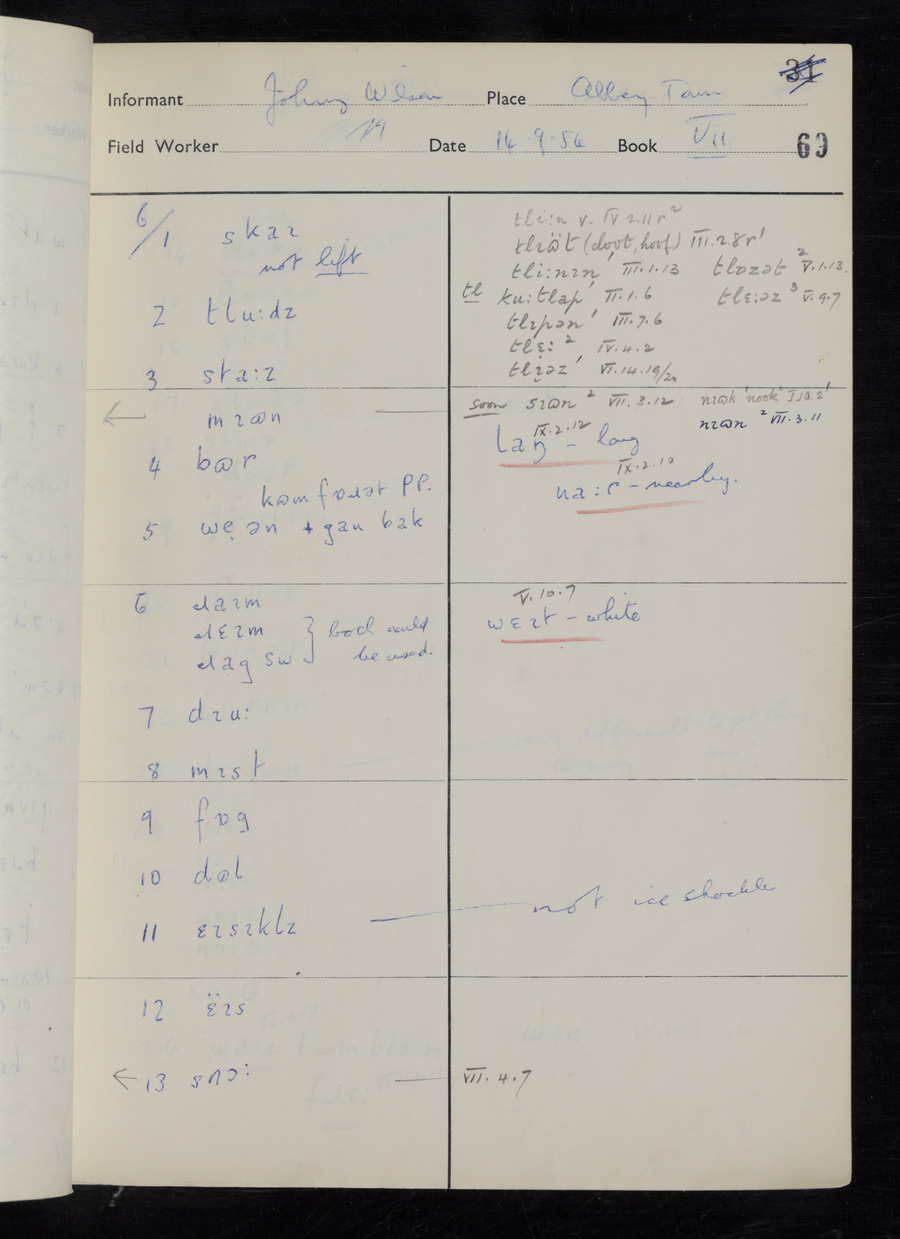 31
Informant Johnny Wilson Place Abbey Town
Field Worker Date 14.9.54 Book VII 69
6/1 skaɪ
not lift
2 tlu:dz
3 sta:z
mɪɷn
4 bɷr
kɷmfɒɹət PP.
5 wẹ ən + gan bak
6 ɹaɪm
ɹɛɪm
ɹag sɪʊ } Both could
be used.
7 dɪu:
8 mɪst
9 fɒg
10 dɷl
11 ɛɪsɪklz
12 ɛ̈ɪs
13 snɔ:
tli:n v. IV.2.11r²
tlɪɷ̈t (cloot, hoof) III.2.8r¹
tli:nɪn¹ III.1.13 tlɒzət² V.1.13.
tl ku:tlap¹ II.1.6 tlɛ:əz³ V.9.7
tlɪpən¹ III.7.6
tlɛ:² IV.4.2
tlɪəz¹ VI.14.19/20
soon sɪɷn² VII.3.12 nɪɷk 'nook' I.10.2¹
IX.2.12 nɪɷn² VII.3.11
laŋ – long
IX.2.10
na:r – nearby.
V.10.7
wɛɪt – white
not ice shockle
VII.4.7